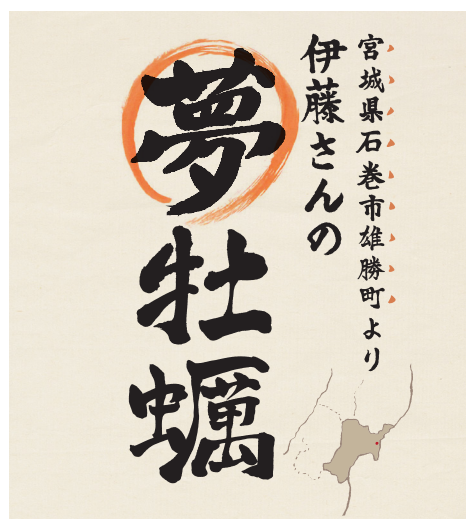 宮城県石巻市雄勝町より
伊藤さんの
夢牡蠣